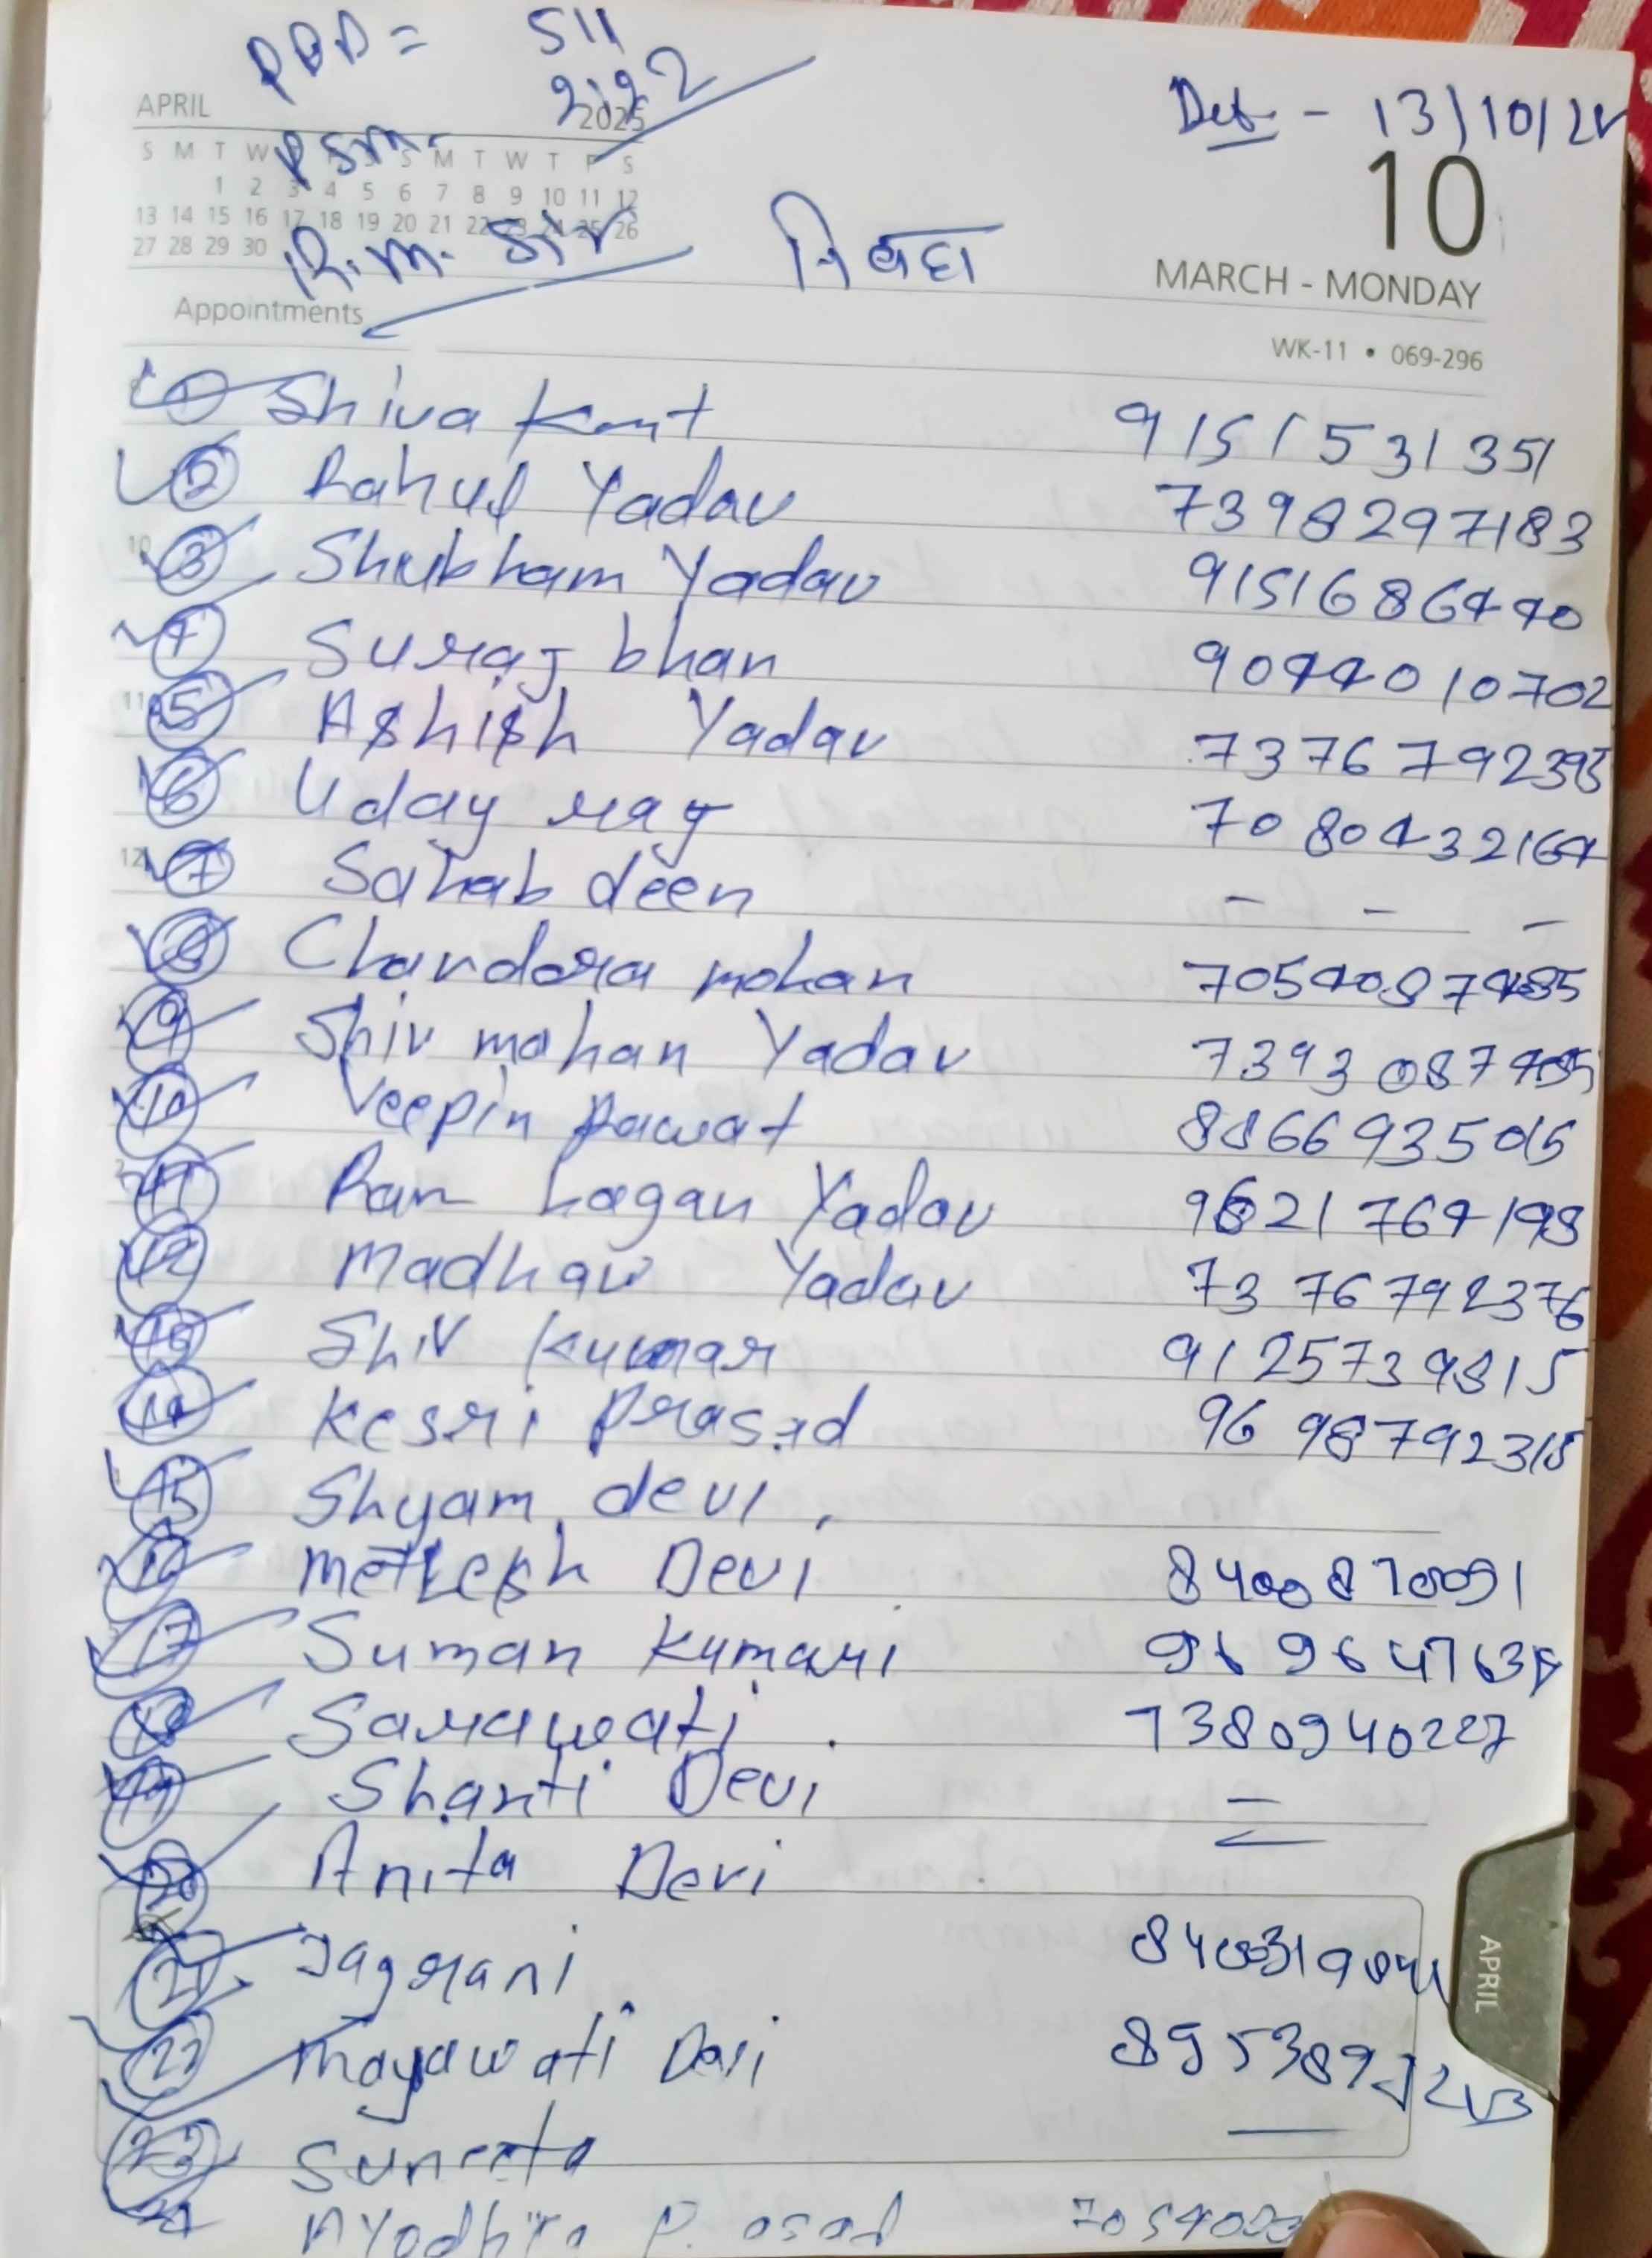 PDD = 511
2122
APRIL 2025
Psm-
S M T W T F S S M T W T F S
1 2 3 4 5 6 7 8 9 10 11 12
13 14 15 16 17 18 19 20 21 22 23 24 25 26
27 28 29 30
R.m. Sir
Appointments
निबहा
- 13/10/25
10
MARCH - MONDAY
WK-11 • 069-296
1 Shiva Kant 9151531351
2 Rahul Yadav 7398297183
3 Shubham Yadav 9151686440
4 Suraj bhan 9044010702
5 Ashish Yadav 7376792393
6 Uday raj 7080432164
7 Sahab deen - - -
8 Chandra mohan 7054087485
9 Shiv mohan Yadav 7393087485
10 Veepin Rawat 8866935015
11 Ram Lagan Yadav 9621764198
12 Madhaw Yadav 7376792376
13 Shiv Kumar 9125739815
14 Kesri Prasad 9698792315
15 Shyam devi,
16 Devi 8400870091
17 Suman Kumari
18 Sarawati. 7380940227
19 Shanti Devi =
20 Anita Devi
21 Jagrani
22 Mayawati Devi
23 Suneeta —
24 Ayodhya Prasad
APRIL